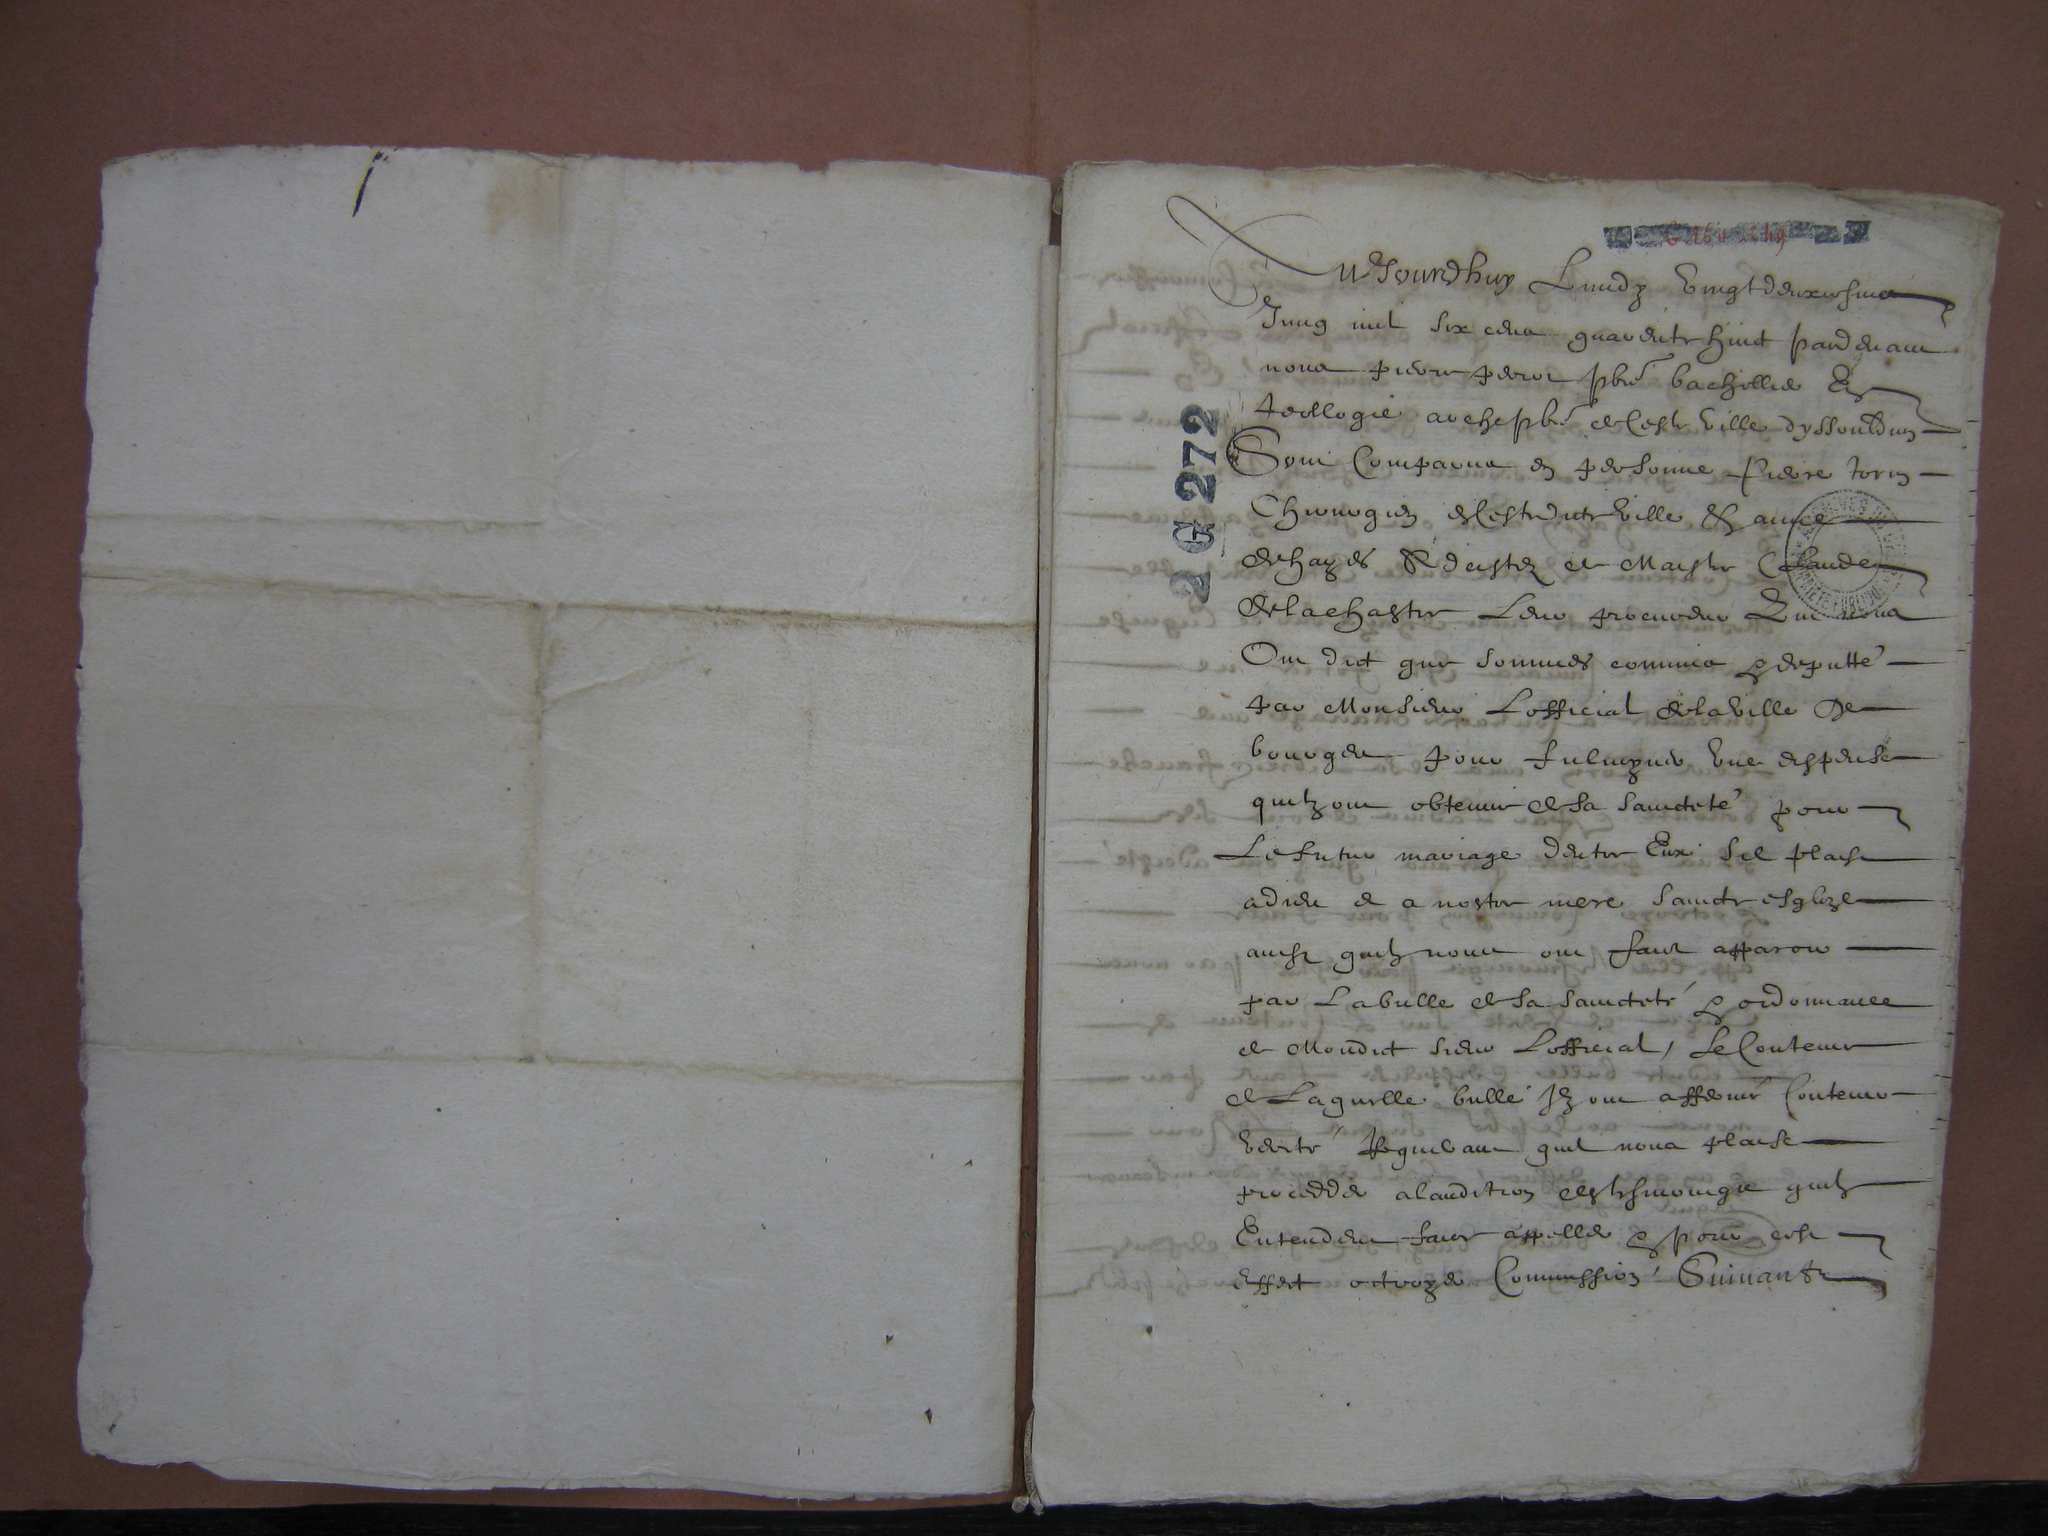 Aujourdhuy Lundy vingt deuxiesme
Juing mil six cens quarente huict pardevant
nous pierre perot pbre bachellier En
teollogie archepbre de ceste ville dyssouldun
Sont Comparus en personne Pierre torin
Chirurgien de ceste dicte ville & anne
dehayes assistez de Maistre Claude
de la chastre Leur procureur Qui nous
Ont dict que sommes commis & deputté
par Monsieur Lofficial de la ville de
bourges pour fulminer une dispense
quilz ont obtenue de sa saincteté pour
Le futur mariage dentre Eux sil plaist
a dieu et a nostre mere saincte esglize
ainsy quilz nous ont faict apparoir
par La bulle de sa saincteté & ordonnance
de Mondict sieur Lofficial, Le Contenu
de Laquelle bulle Ilz ont affermé Contenir
verité Requerant quil nous plaise
procedder a laudition des tesmoings quilz
Entendent faire appeller & pour cest
effect octroyer Commission Suivant
2 G 272